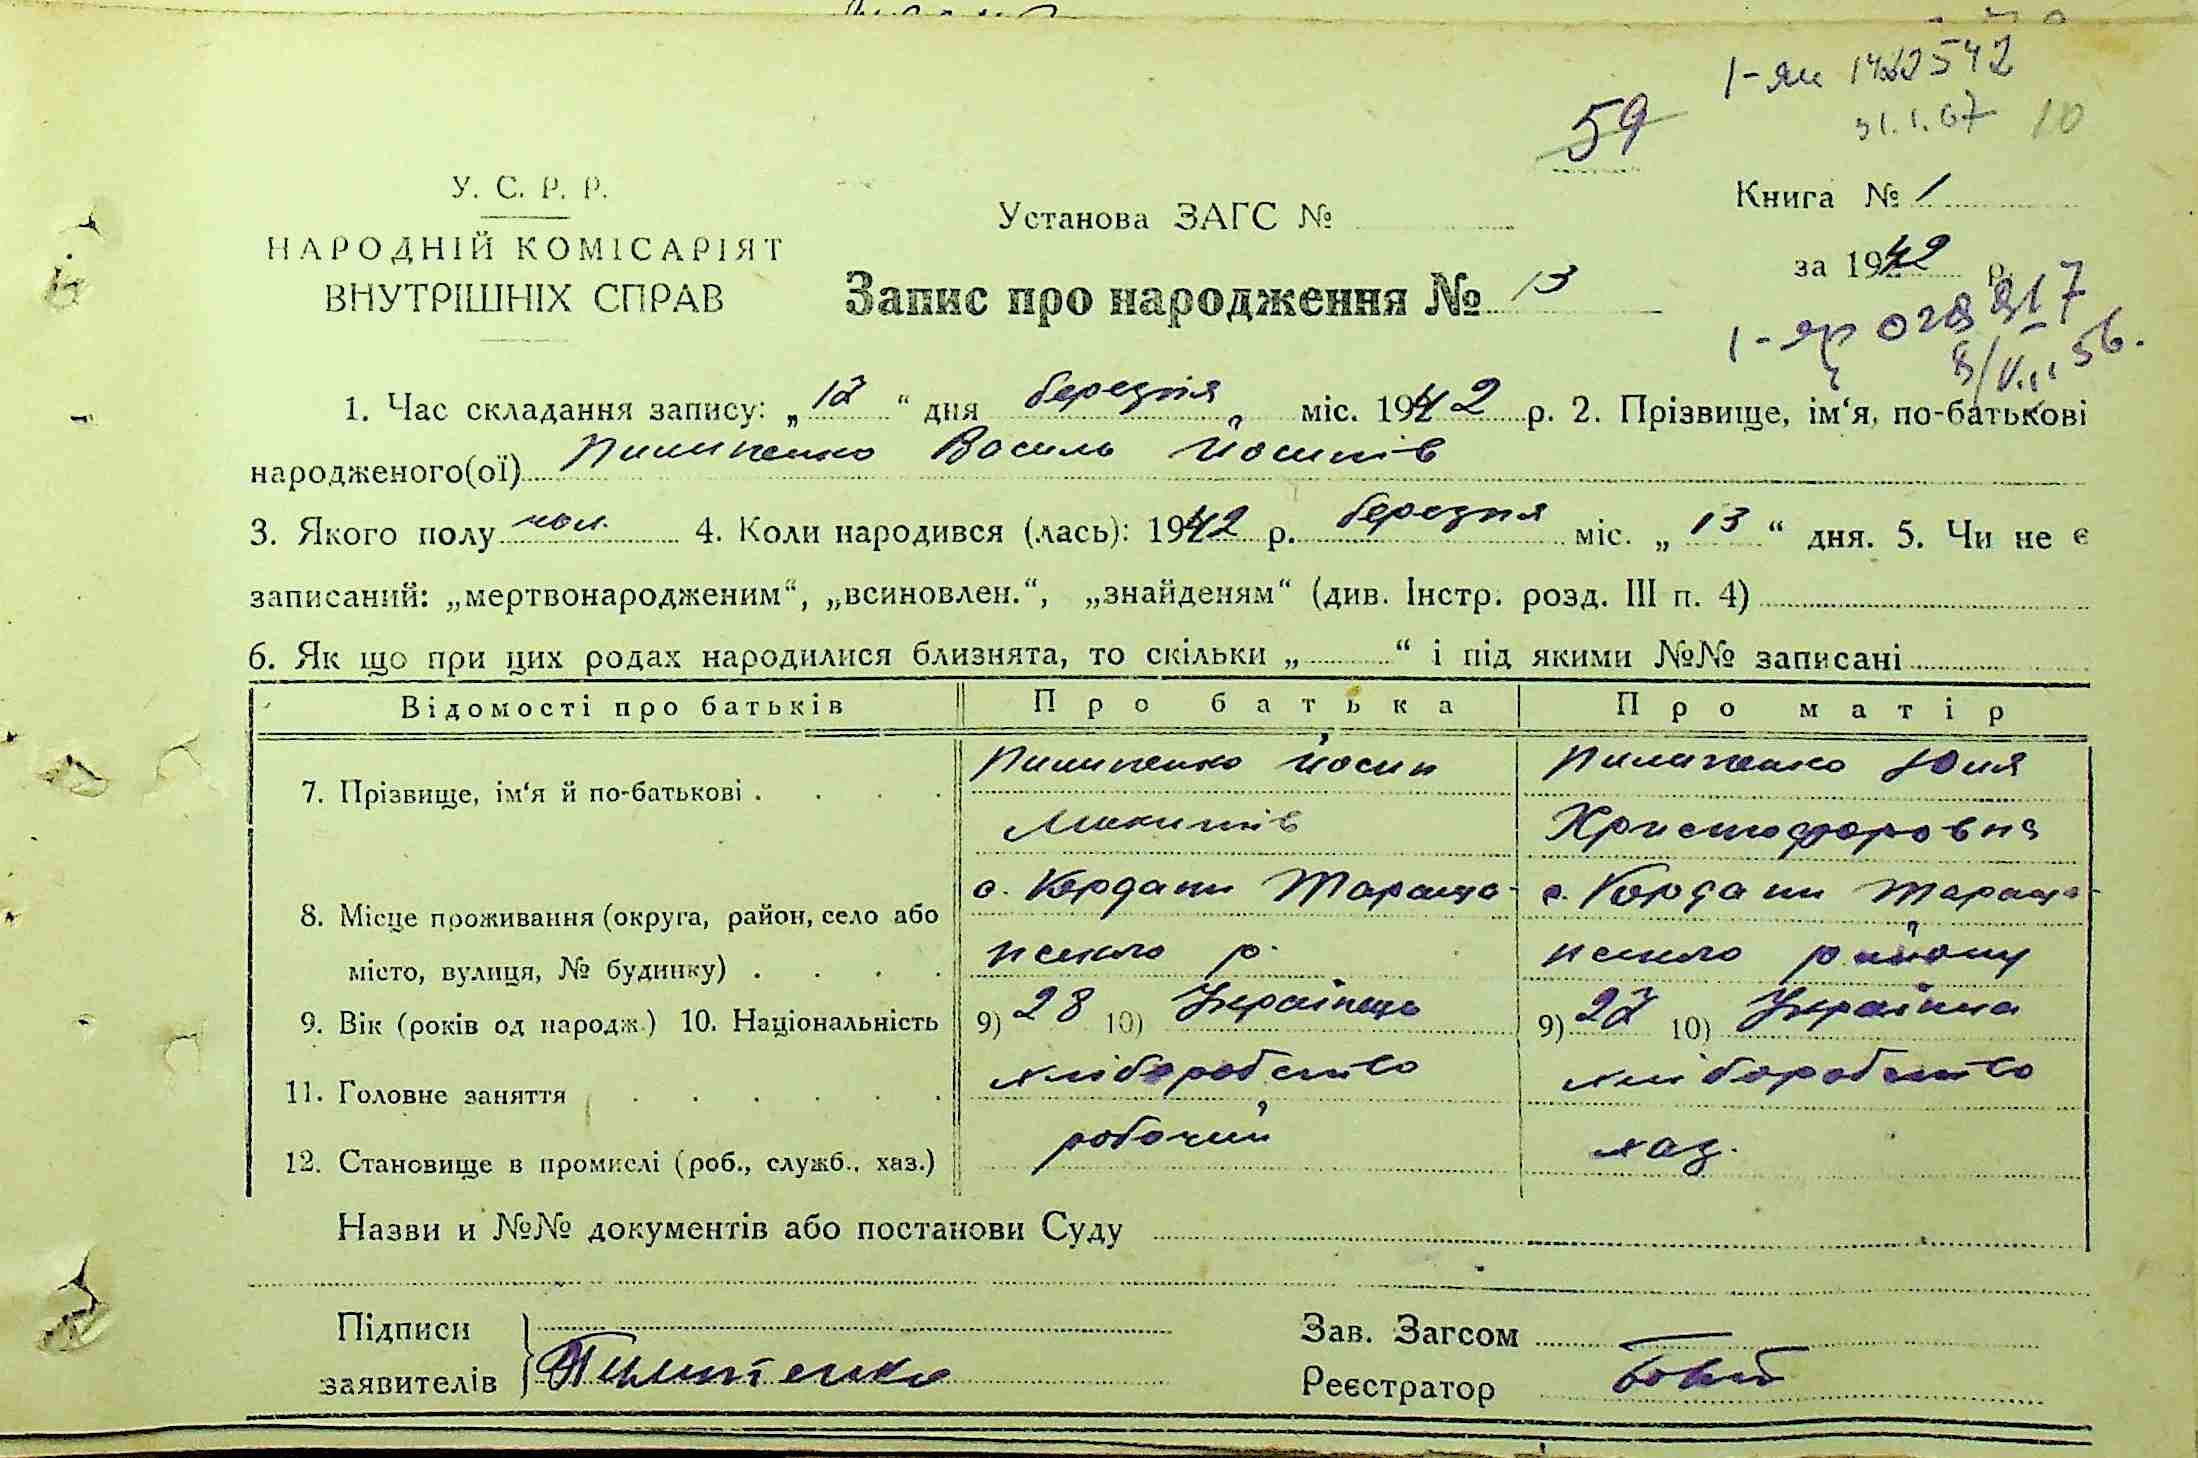 I-яш 1422542
59 31.1.67 10
У. С. Р. Р.
НАРОДНІЙ КОМІСАРІЯТ
ВНУТРІШНІХ СПРАВ
Установа ЗАГС №
Книга № 1
за 1942 р.
Запис про народження № 13
I-яр
1. Час складання запису: „12“ дня березня міс. 1942 р. 2. Прізвище, ім‘я, по-батькові
народженого(ої) Пилипенко Василь Йосипів
3. Якого полу чол. 4. Коли народився (лась): 1942 р. березня міс. „13“ дня. 5. Чи не є
записаний: „мертвонародженим“, „всиновлен.“, „знайденям“ (див. Інстр. розд. III п. 4)
6. Як що при цих родах народилися близнята, то скільки „ “ і під якими №№ записані
Відомості про батьків Про батька Про матір
7. Прізвище, ім‘я й по-батькові . . . . Пилипенко Йосип Пилипенко Юлія
Христофоровна
8. Місце проживання (округа, район, село або місто, вулиця, № будинку) . . . . с. Кердани Тараща- с. Кердани Тараща-
нсько р. нсько району
9. Вік (років од народж.) 10. Національність 9) 28 10) Українець 9) 27 10) Українка
11. Головне заняття . . . . . . хліборобство хліборобство
12. Становище в промислі (роб., служб., хаз.) робочий хаз.
Назви и №№ документів або постанови Суду
Підписи
заявителів Пилипенко
Зав. Загсом
Реєстратор